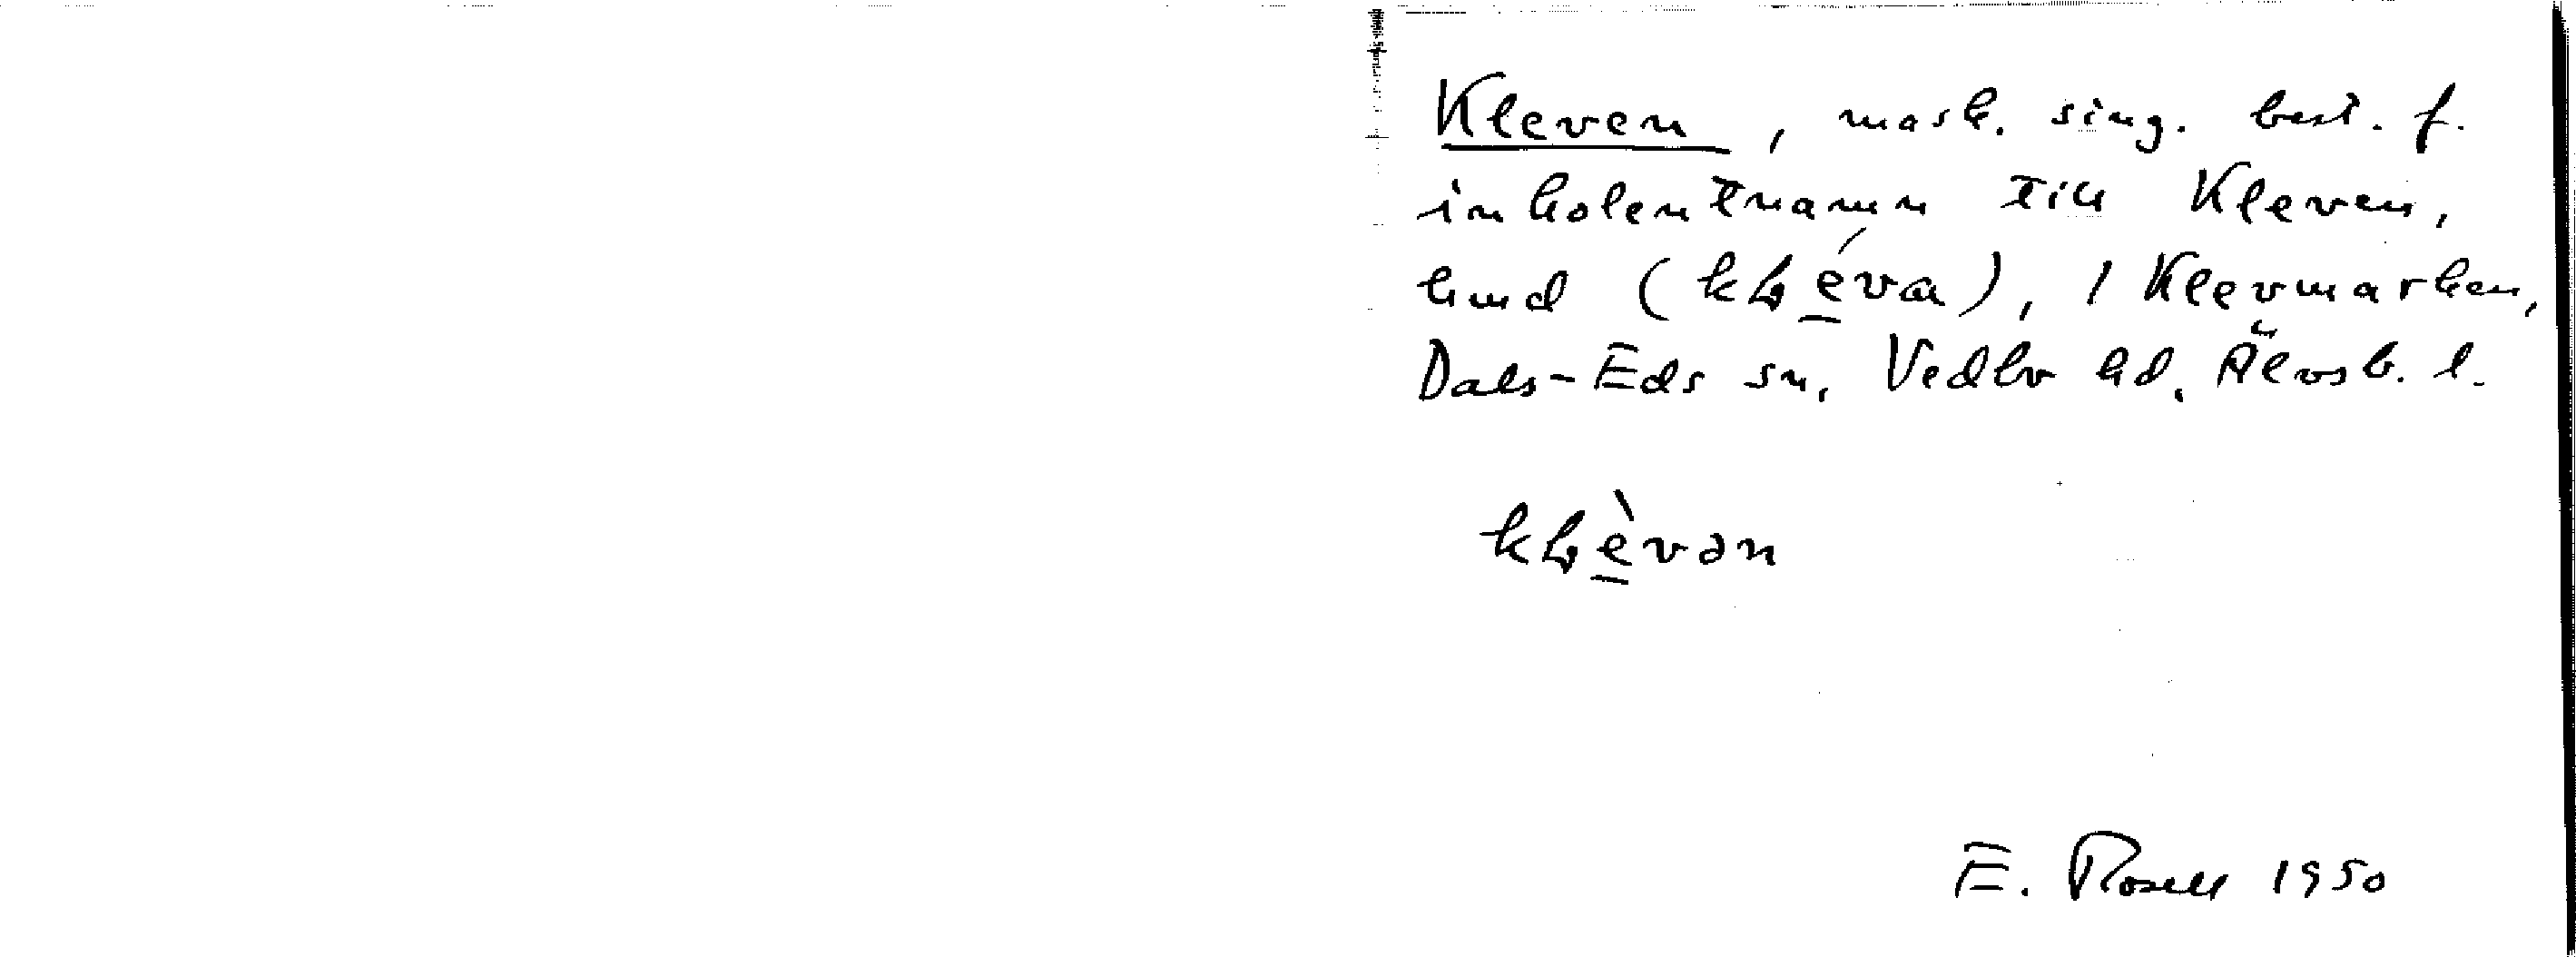 Kleven, mask. sing. best. f.
inkolentnamn till Kleven,
hmd (kɽé̱va), 1 Klevmarken,
Dals-Eds sn, Vedbo hd, Älvsb. l.
kɽè̱vən
E. Rosell 1950